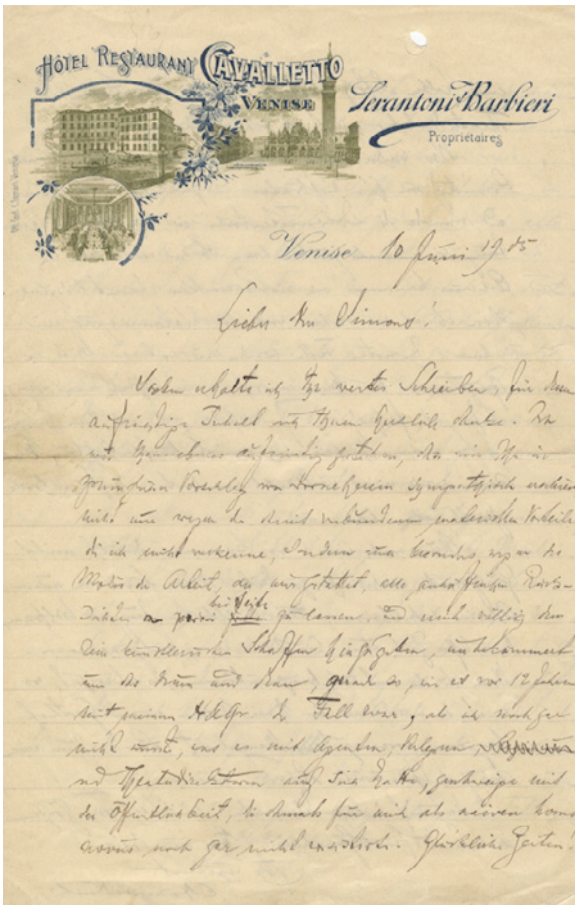 HÔTEL RESTAURANT CAVALLETTO
VENISE
Serantoni & Barbieri
Propriétaires
Venise 10 Juni 1905
Lieber Herr Simons!
Soeben erhalte ich Ihr wertes Schreiben, für dessen
aufrichtige Inhalt ich Ihnen herzlich danke. Ich
muss Ihnen ebenso aufrichtig gestehen, dass mir Ihr
Vorschlag von vorneherein sympathisch
nicht nur wegen der damit verbundenen, materiellen Vorteile
die ich nicht verkenne, sondern ganz besonders wegen des
Modus der Arbeit, der mir gestattet, alle
bei Seite zu lassen, und mich völlig dem
rein künstlerischen Schaffen hinzugeben, unbekümmert
um das Drum und Dran, gerade so, wie es vor 12 Jahren
mit meinem der Fall war, als ich noch gar
nicht wusste, was es mit Agenten, Verlegern
und Theaterdirektoren auf sich hatte, geschweige mit
der Öffentlichkeit, die damals für mich als homo
novus noch gar nicht existirte. Glückliche Zeiten!